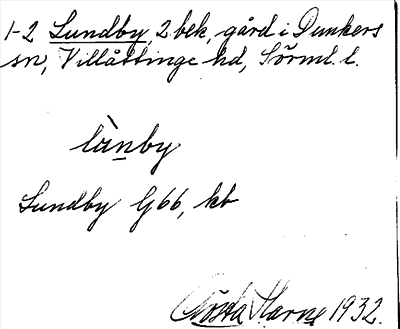 1-2 Lundby, 2 bek, gård i Dunkers
sn, Villåttinge hd, Sörml. l.
lànby
Lundby G66, kb
Gösta Harne 1932.